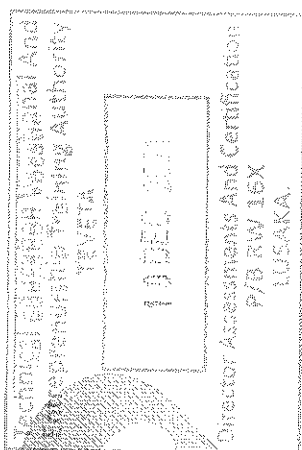 Technical Education Vocational And
Entrepreneurship Training Authority
TEVETA
DEC
Director Assessments And Certification
P/B RW 16X
LUSAKA.